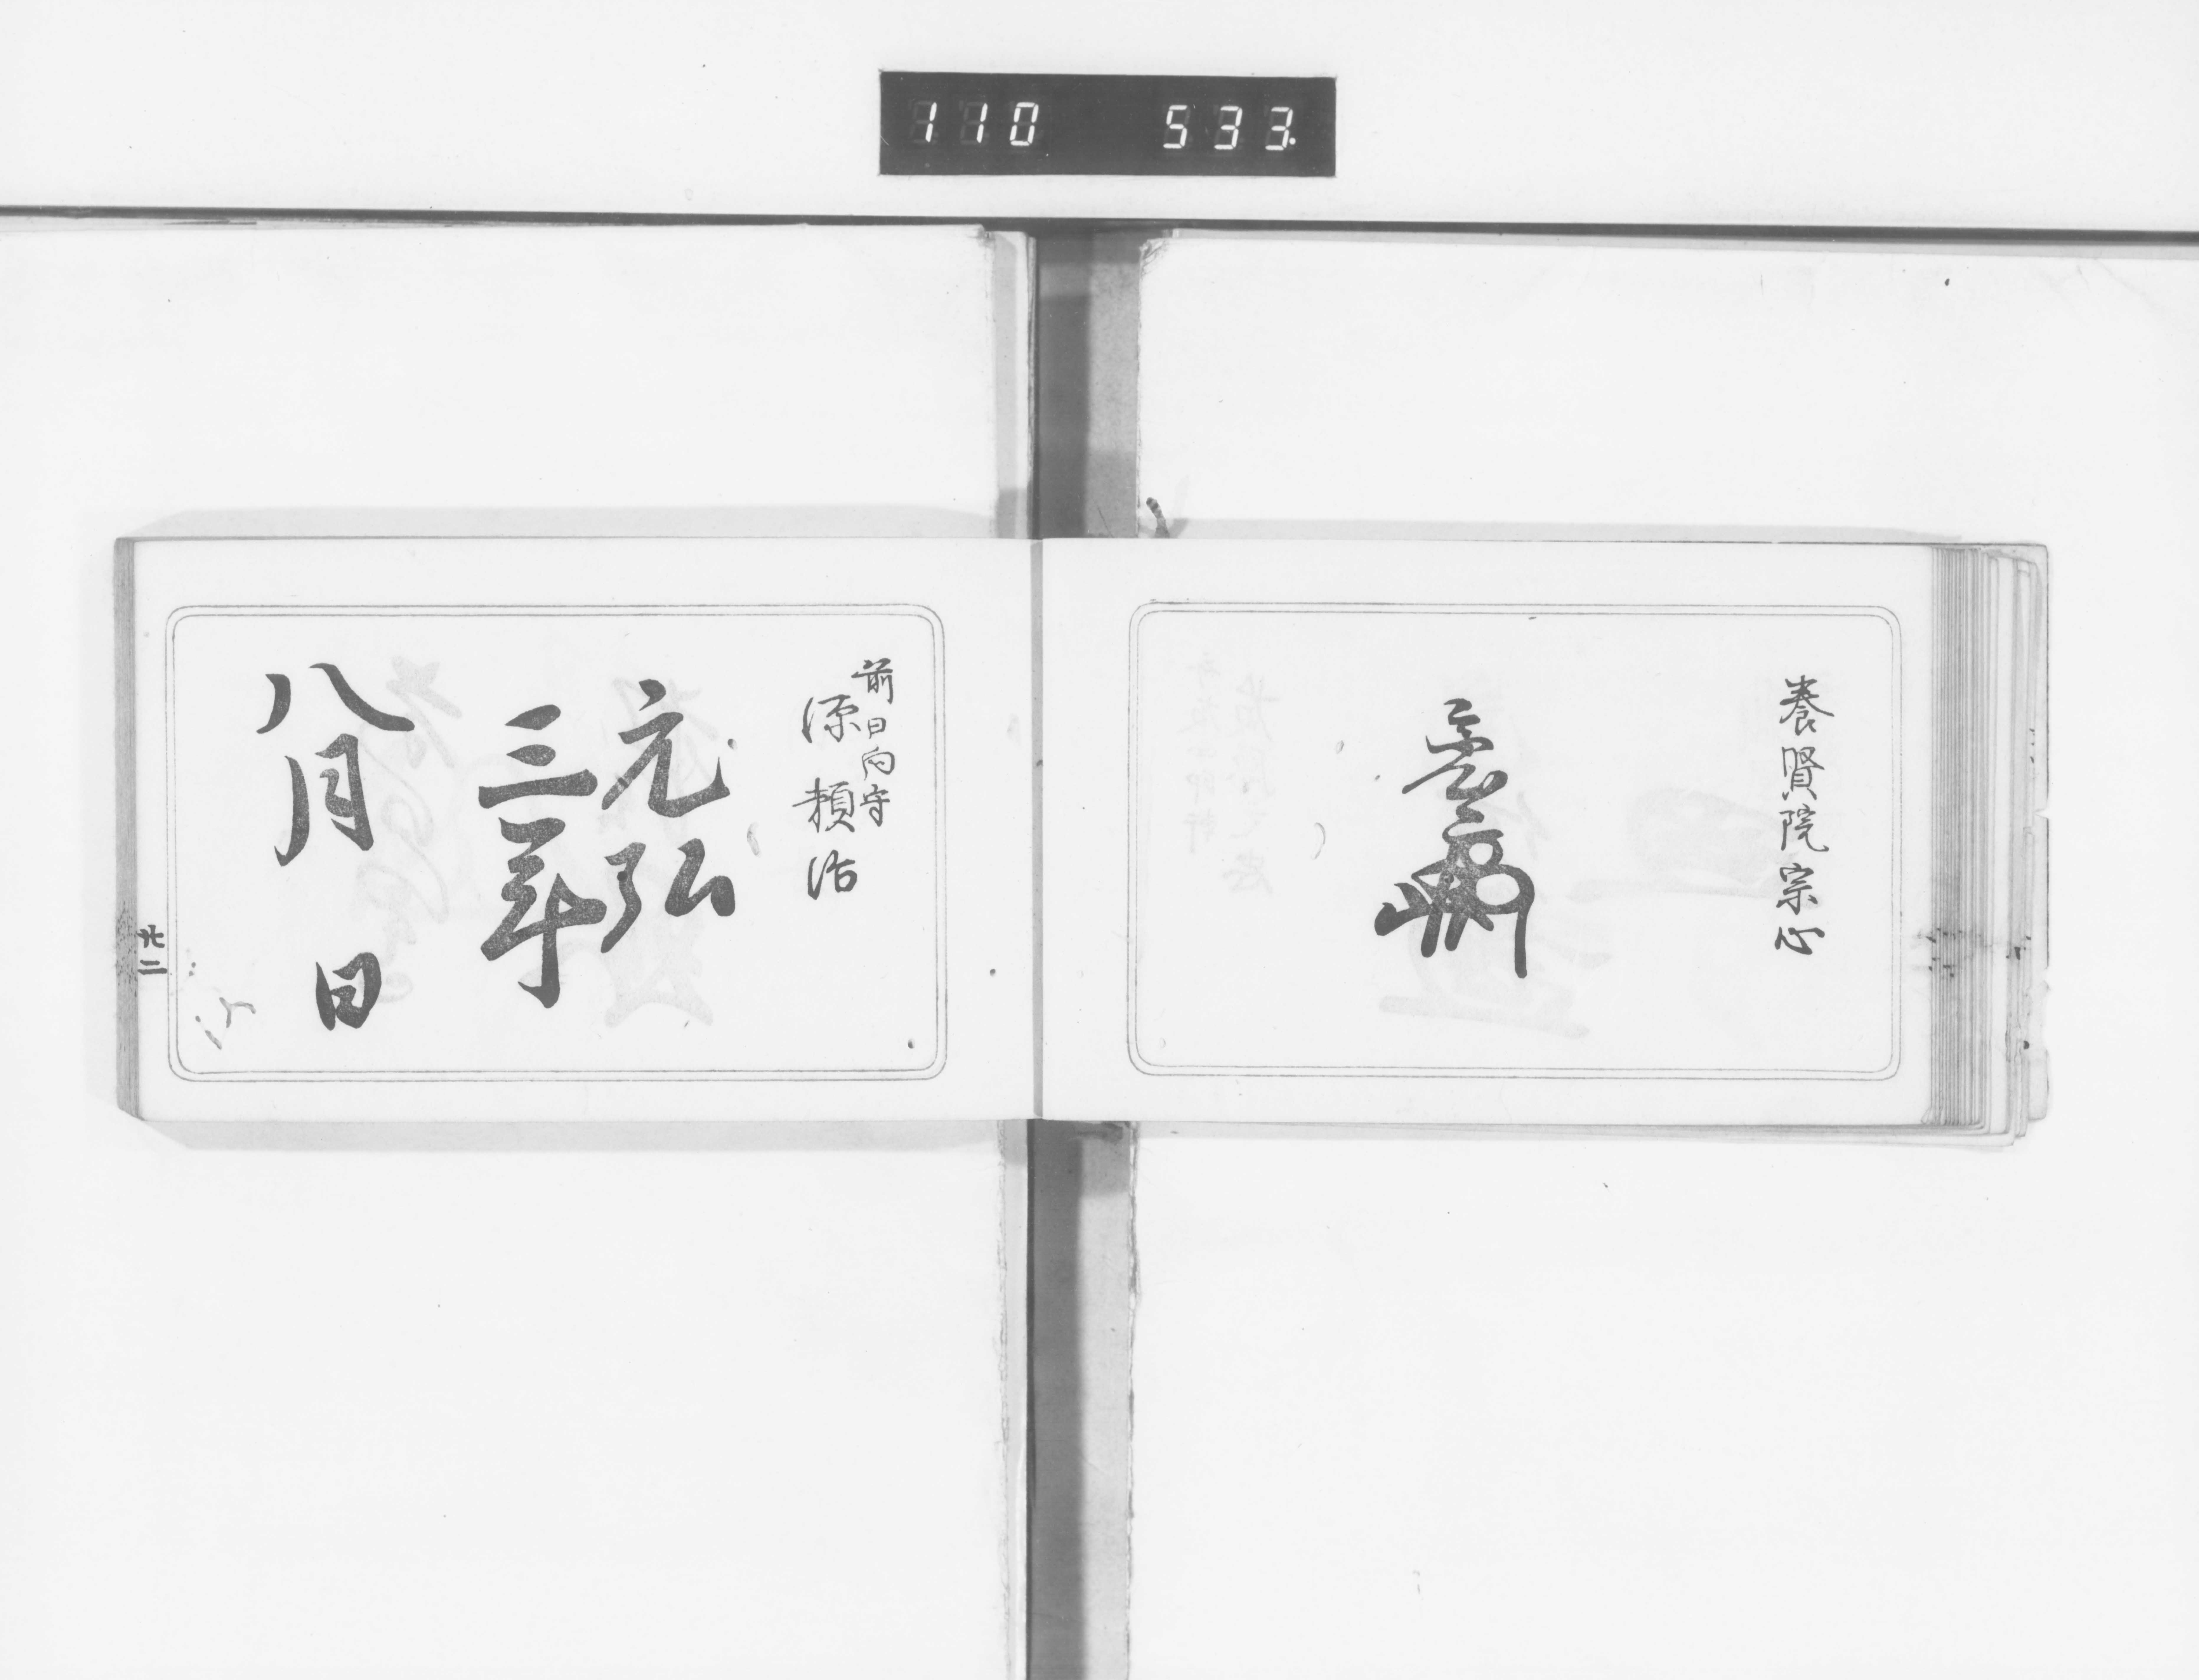 110 533
養賢院宗心
前日向守
源頼治
元弘
三年
八月 日
廿二